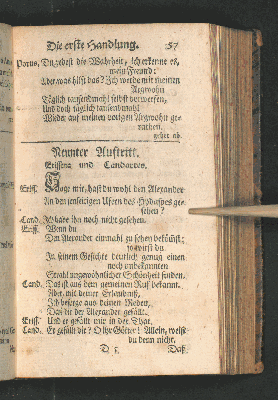 Die erste Handlung. 57
Porus. Du gebst die Wahrheit, ich erkenne es,
mein Freund:
Aber was hilft das? Ich werde mit meinen
Argwohn
Täglich tausendmahl selbst verwerffen,
Und doch täglich tausendmahl
Wieder auf meinen vorigen Argwohn ge-
rathen.
gehet ab.
Neunter Auftritt.
Erissena und Candartes.
Eriss. Sage mir, hast du wohl den Alexander
An den jenseitigen Ufern des Hydaspes ge-
sehen?
Cand. Ich habe ihn noch nicht gesehen.
Eriss. Wenn du
Den Alexander einmahl zu sehen bekömst;
so wirst du
In seinem Gesichte deutlich genug einen
noch unbekannten
Strahl ungewöhnlicher Schönheit finden.
Cand. Das ist aus dem gemeinen Ruf bekannt.
Aber, mit deiner Erlaubniß,
Ich besorge aus deinen Reden,
Daß dir der Alexander gefällt.
Eriss. Und er gefällt mir in der That.
Cand. Er gefällt dir? O ihr Götter! Allein, weist
du denn nicht,
D 5 Daß